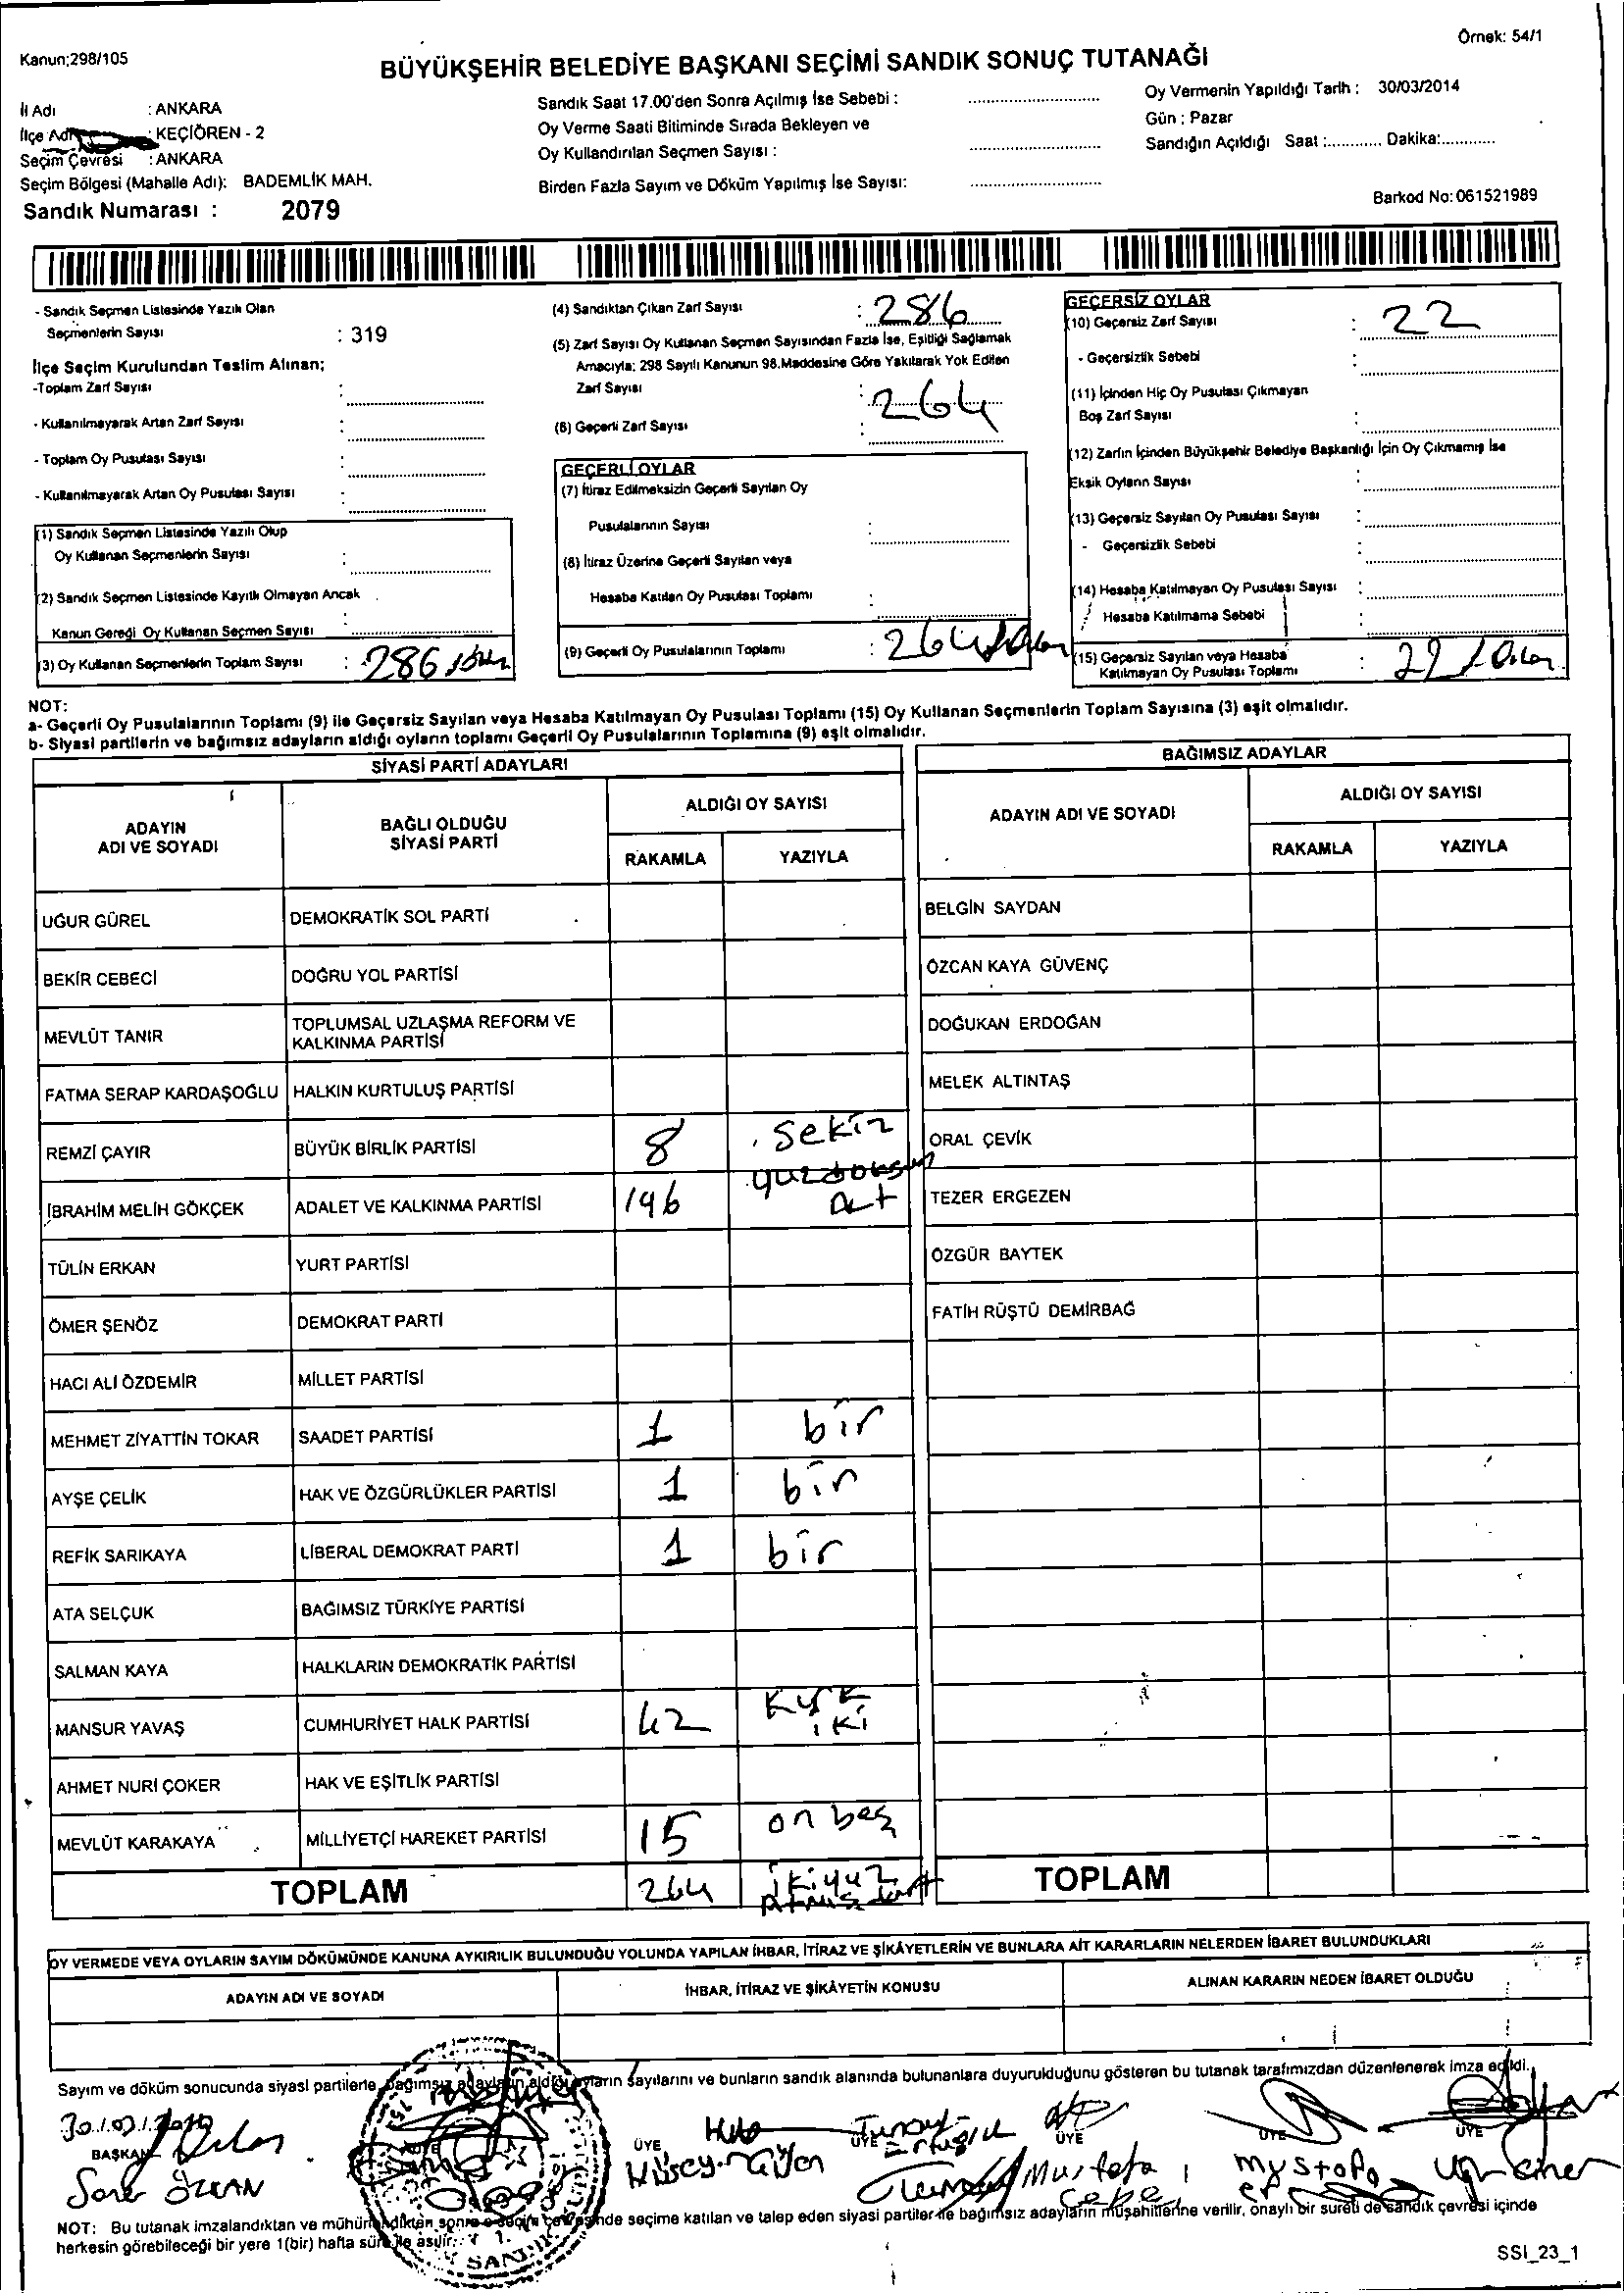 Kanun;298/105
Örnek: 54/1
BÜYÜKŞEHİR BELEDİYE BAŞKANI SEÇİMİ SANDIK SONUÇ TUTANAĞI
İl Adı : ANKARA
İlçe Adı : KEÇİÖREN - 2
Seçim Çevresi : ANKARA
Seçim Bölgesi (Mahalle Adı): BADEMLİK MAH.
Sandık Numarası : 2079
Sandık Saat 17.00'den Sonra Açılmış İse Sebebi :
Oy Verme Saati Bitiminde Sırada Bekleyen ve
Oy Kullandırılan Seçmen Sayısı :
Birden Fazla Sayım ve Döküm Yapılmış İse Sayısı:
Oy Vermenin Yapıldığı Tarih : 30/03/2014
Gün : Pazar
Sandığın Açıldığı Saat :............ Dakika:............
Barkod No: 061521989
- Sandık Seçmen Listesinde Yazılı Olan
Seçmenlerin Sayısı : 319
İlçe Seçim Kurulundan Teslim Alınan;
-Toplam Zarf Sayısı :
- Kullanılmayarak Artan Zarf Sayısı :
- Toplam Oy Pusulası Sayısı :
- Kullanılmayarak Artan Oy Pusulası Sayısı :
(1) Sandık Seçmen Listesinde Yazılı Olup
Oy Kullanan Seçmenlerin Sayısı :
(2) Sandık Seçmen Listesinde Kayıtlı Olmayan Ancak
Kanun Gereği Oy Kullanan Seçmen Sayısı :
(3) Oy Kullanan Seçmenlerin Toplam Sayısı : 286
(4) Sandıktan Çıkan Zarf Sayısı : 286
(5) Zarf Sayısı Oy Kullanan Seçmen Sayısından Fazla İse, Eşitliği Sağlamak
Amacıyla; 298 Sayılı Kanunun 98.Maddesine Göre Yakılarak Yok Edilen
Zarf Sayısı :
264
(6) Geçerli Zarf Sayısı :
GEÇERLİ OYLAR
(7) İtiraz Edilmeksizin Geçerli Sayılan Oy
Pusulalarının Sayısı :
(8) İtiraz Üzerine Geçerli Sayılan veya
Hesaba Katılan Oy Pusulası Toplamı :
(9) Geçerli Oy Pusulalarının Toplamı : 264
GEÇERSİZ OYLAR
(10) Geçersiz Zarf Sayısı : 22
- Geçersizlik Sebebi :
(11) İçinden Hiç Oy Pusulası Çıkmayan
Boş Zarf Sayısı :
(12) Zarfın İçinden Büyükşehir Belediye Başkanlığı İçin Oy Çıkmamış İse
Eksik Oyların Sayısı :
(13) Geçersiz Sayılan Oy Pusulası Sayısı :
- Geçersizlik Sebebi :
(14) Hesaba Katılmayan Oy Pusulası Sayısı :
Hesaba Katılmama Sebebi :
(15) Geçersiz Sayılan veya Hesaba
Katılmayan Oy Pusulası Toplamı : 22
NOT:
a- Geçerli Oy Pusulalarının Toplamı (9) ile Geçersiz Sayılan veya Hesaba Katılmayan Oy Pusulası Toplamı (15) Oy Kullanan Seçmenlerin Toplam Sayısına (3) eşit olmalıdır.
b- Siyasi partilerin ve bağımsız adayların aldığı oyların toplamı Geçerli Oy Pusulalarının Toplamına (9) eşit olmalıdır.
SİYASİ PARTİ ADAYLARI
ADAYIN ADI VE SOYADI
BAĞLI OLDUĞU SİYASİ PARTİ
ALDIĞI OY SAYISI
RAKAMLA YAZIYLA
UĞUR GÜREL DEMOKRATİK SOL PARTİ
BEKİR CEBECİ DOĞRU YOL PARTİSİ
MEVLÜT TANIR TOPLUMSAL UZLAŞMA REFORM VE KALKINMA PARTİSİ
FATMA SERAP KARDAŞOĞLU HALKIN KURTULUŞ PARTİSİ
REMZİ ÇAYIR BÜYÜK BİRLİK PARTİSİ 8 sekiz
İBRAHİM MELİH GÖKÇEK ADALET VE KALKINMA PARTİSİ 196 yüzdoksan altı
TÜLİN ERKAN YURT PARTİSİ
ÖMER ŞENÖZ DEMOKRAT PARTİ
HACI ALİ ÖZDEMİR MİLLET PARTİSİ
MEHMET ZİYATTİN TOKAR SAADET PARTİSİ 1 bir
AYŞE ÇELİK HAK VE ÖZGÜRLÜKLER PARTİSİ 1 bir
REFİK SARIKAYA LİBERAL DEMOKRAT PARTİ 1 bir
ATA SELÇUK BAĞIMSIZ TÜRKİYE PARTİSİ
SALMAN KAYA HALKLARIN DEMOKRATİK PARTİSİ
MANSUR YAVAŞ CUMHURİYET HALK PARTİSİ 42 Kırk iki
AHMET NURİ ÇOKER HAK VE EŞİTLİK PARTİSİ
MEVLÜT KARAKAYA MİLLİYETÇİ HAREKET PARTİSİ 15 on beş
TOPLAM 264 ikiyüz Atmış dört
BAĞIMSIZ ADAYLAR
ADAYIN ADI VE SOYADI
ALDIĞI OY SAYISI
RAKAMLA YAZIYLA
BELGİN SAYDAN
ÖZCAN KAYA GÜVENÇ
DOĞUKAN ERDOĞAN
MELEK ALTINTAŞ
ORAL ÇEVİK
TEZER ERGEZEN
ÖZGÜR BAYTEK
FATİH RÜŞTÜ DEMİRBAĞ
TOPLAM
OY VERMEDE VEYA OYLARIN SAYIM DÖKÜMÜNDE KANUNA AYKIRILIK BULUNDUĞU YOLUNDA YAPILAN İHBAR, İTİRAZ VE ŞİKÂYETLERİN VE BUNLARA AİT KARARLARIN NELERDEN İBARET BULUNDUKLARI
ADAYIN ADI VE SOYADI
İHBAR, İTİRAZ VE ŞİKÂYETİN KONUSU
ALINAN KARARIN NEDEN İBARET OLDUĞU
Sayım ve döküm sonucunda siyasi partilerle bağımsız adayların aldığı oyların sayılarını ve bunların sandık alanında bulunanlara duyurulduğunu gösteren bu tutanak tarafımızdan düzenlenerek imza edildi.
BAŞKAN ÜYE ÜYE ÜYE ÜYE ÜYE
ÖZCAN
Mustafa
Mustafa
NOT: Bu tutanak imzalandıktan ve mühürlendikten sonra seçim çevresinde seçime katılan ve talep eden siyasi partiler ile bağımsız adayların müşahitlerine verilir, onaylı bir sureti de sandık çevresi içinde
herkesin görebileceği bir yere 1(bir) hafta süre ile asılır.
SSI_23_1